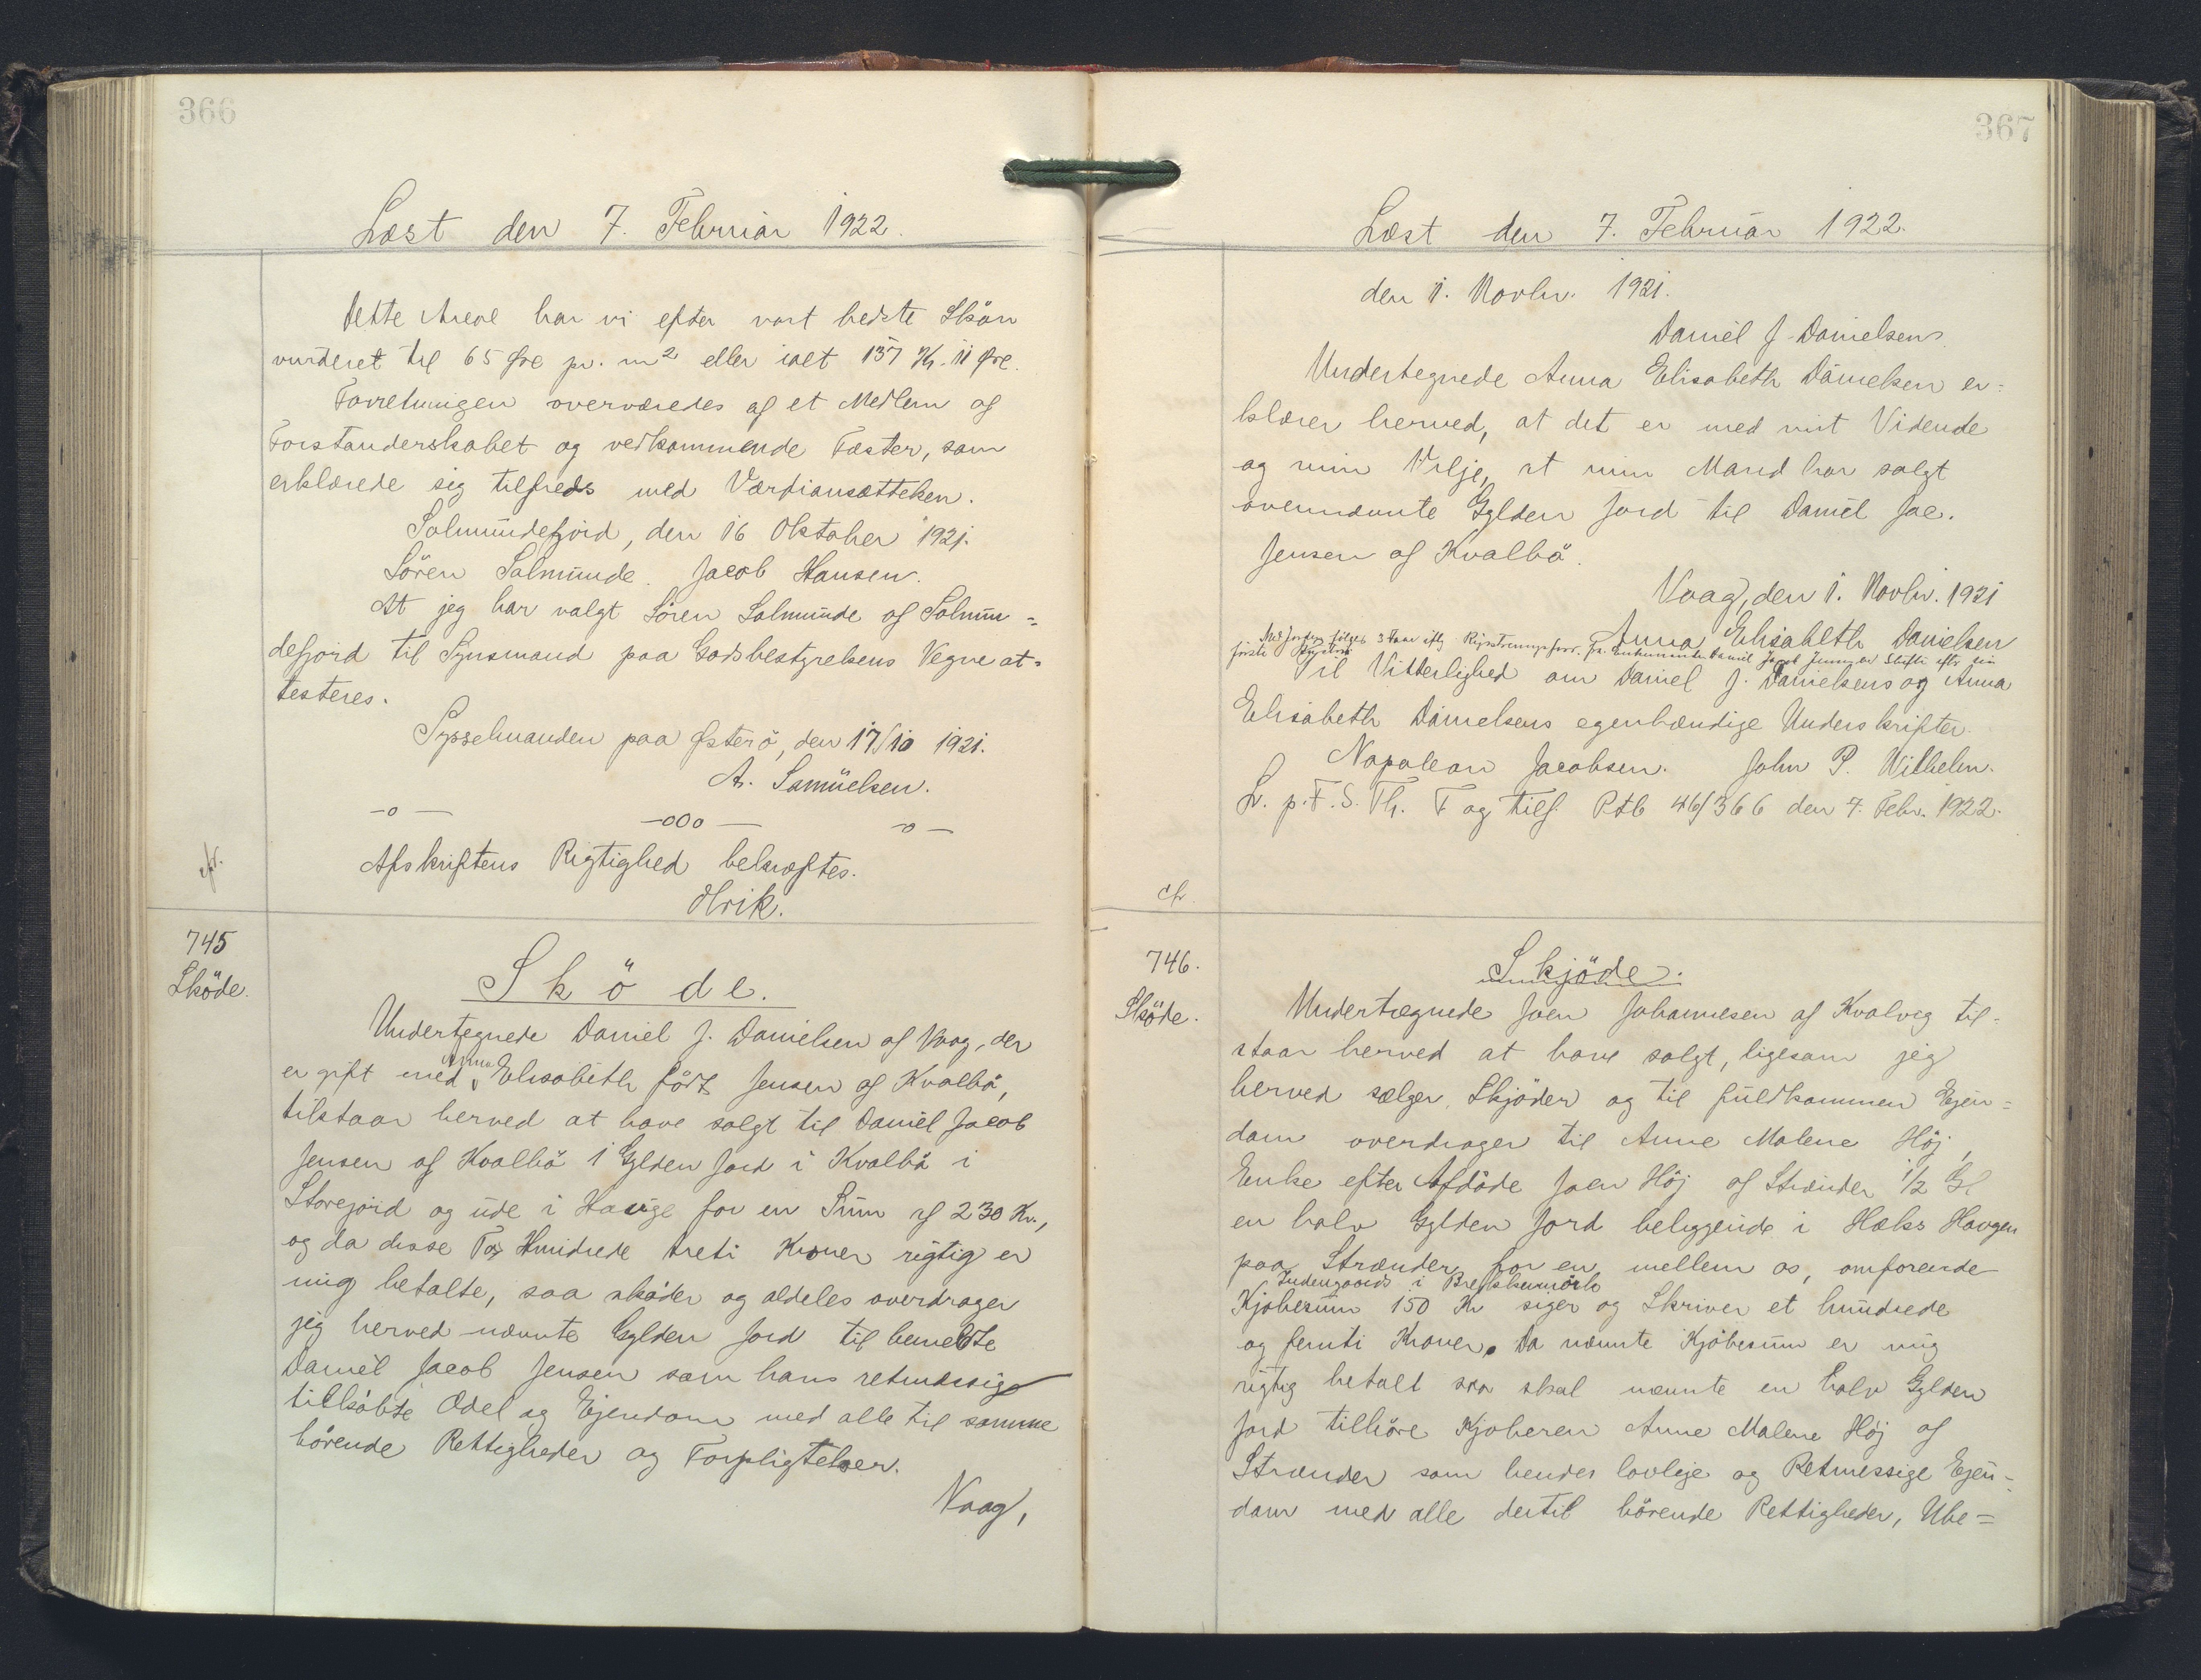 366
Læst den 7. Februar 1922.
Dette Areal har vi efter vort bedste Skön
vurderet til 65 Øre pr. m² eller ialt 137 Kr. 11 Øre.
Forretningen overværedes af et Medlem af
Forstanderskabet og vedkommende Fæster, som
erklærede sig tilfreds med Værdiansættelsen.
Solmundefjord, den 16 Oktober 1921.
Sören Solmunde. Jacob Hansen.
At jeg har valgt Sören Solmunde af Solmun=
defjord til Synsmand paa Godsbestyrelsens Vegne at=
testeres.
Sysselmanden paa Østerö, den 17/10 1921.
A. Samüelsen.
—o— —oOo— —o—
Afskriftens Rigtighed bekræftes.
cfr.
745
Sköde.
Sköde.
Undertegnede Daniel J. Danielsen af Vaag, der
er gift med Anna Elisabeth födt Jensen af Kvalbö,
tilstaar herved at have solgt til Daniel Jacob
Jensen af Kvalbö 1 Gylden Jord i Kvalbö i
Storejord og ude i Hauge for en Sum af 230 Kr.,
og da disse To Hundrede treti Kroner rigtig er
mig betalte, saa sköder og aldeles overdrager
jeg herved nævnte Gylden Jord til bemeldte
Daniel Jacob Jensen som hans retmæssige
tilköbte Odel og Ejendom med alle til samme
hörende Rettigheder og Forpligtelser.
Vaag,
367
Læst den 7. Februar 1922.
den 1. Novbr. 1921.
Daniel J. Danielsen
Undertegnede Anna Elisabeth Danielsen er=
klærer herved, at det er med mit Vidende
og min Vilje, at min Mand har solgt
ovennævnte Gylden Jord til Daniel Jac.
Jensen af Kvalbö.
Vaag, den 1. Novbr. 1921
Anna Elisabeth Danielsen
Til Vitterlighed om Daniel J. Danielsens og Anna
Elisabeth Danielsens egenhændige Underskrifter.
Napoleon Jacobsen. John P. Wilhelm.
L. p. F. S. Th. F og tilf. Ptb 46/366 den 7. Febr. 1922.
cfr
746.
Sköde.
Skjöde.
Undertegnede Joen Johannesen af Kvalvig til=
staar herved at have solgt, ligesom jeg
herved sælger, Skjöder og til fuldkommen Ejen=
dom overdrager til Anne Malene Höj,
Enke efter Afdöde Joen Höj af Strænder 1/2 Gl
en halv Gylden Jord beliggende i Hæls Haugen
paa Strænder for en mellem os, omforende
Indengaards i
Kjöbesum 150 Kr siger og Skriver et hundrede
og femti Kroner. Da nævnte Kjöbesum er mig
rigtig betalt saa skal nævnte en halv Gylden
Jord tilhöre Kjøberen Anne Malene Höj af
Strænder som hendes lovlige og Retmessige Ejen=
dom med alle dertil hörende Rettigheder, Ube=